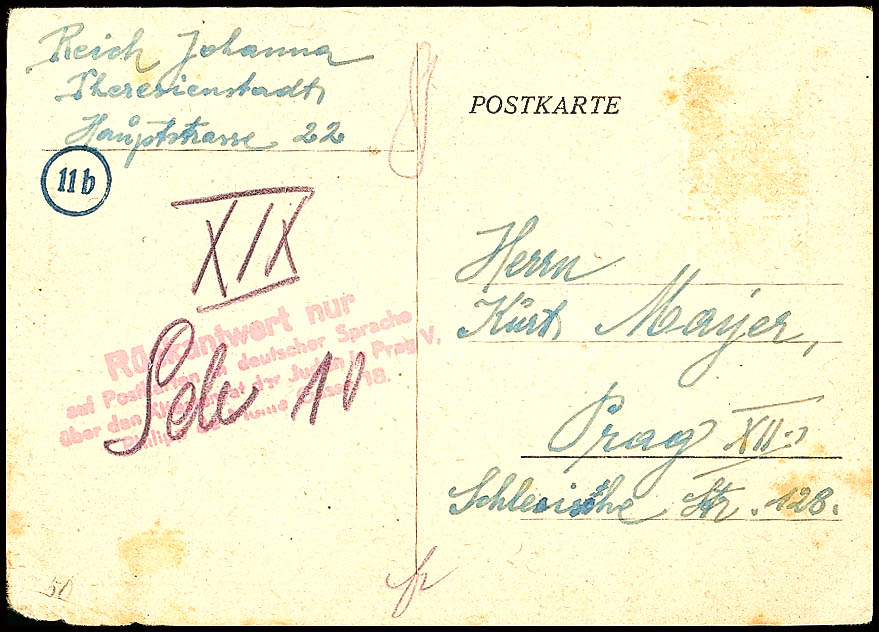 Reich Johanna
Theresienstadt,
Hauptstrasse 22
11b
XIX
Rückantwort nur
auf Postkarten in deutscher Sprache
über den der Juden in Prag V,
18.
10
POSTKARTE
Herrn
Kurt Mayer,
Prag XII.
Schlesische Str. 128.
50